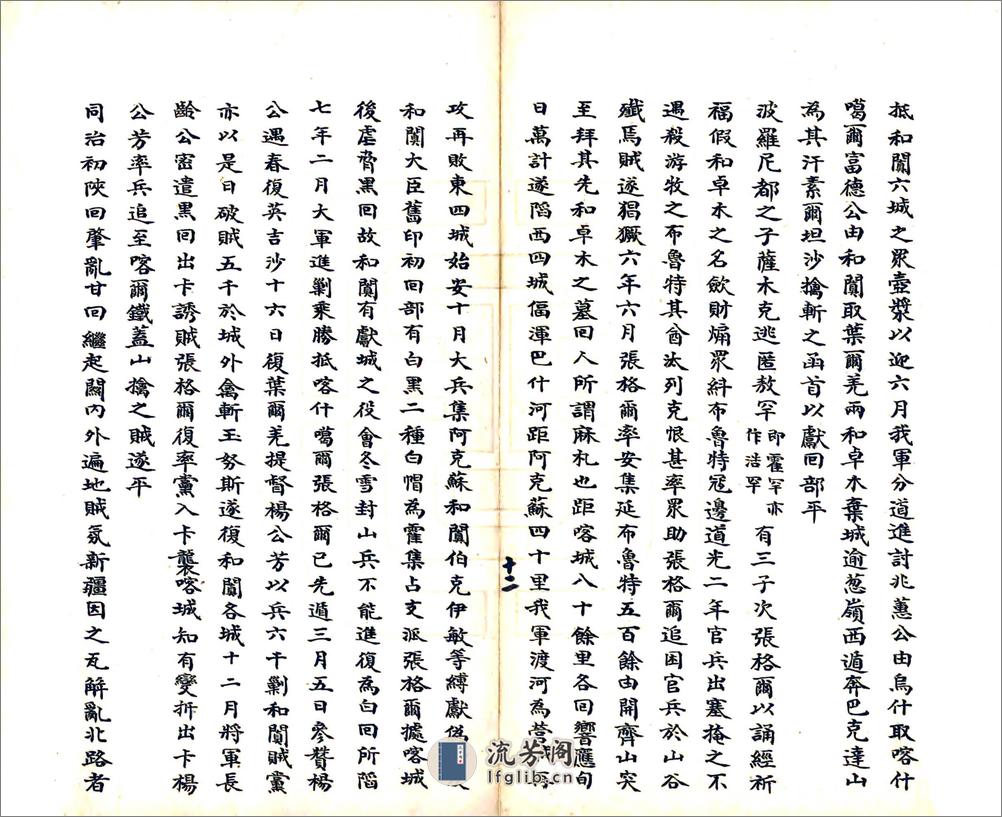 抵和闐六城之眾壺漿以迎六月我軍分道進討兆蕙公由烏什取喀什
噶爾富德公由和闐取葉爾羌兩和卓木棄城逾葱嶺西遁奔巴克達山
為其汗素爾坦沙擒斬之函首以獻回部平
波羅尼都之子薩木克逃匿敖罕即霍罕亦作浩罕有三子次張格爾以誦經祈
福假和卓木之名歛財煽眾糾布魯特冦邊道光二年官兵出塞掩之不
遇殺游牧之布魯特其酋汰列克恨甚率眾助張格爾追困官兵於山谷
殲焉賊遂猖獗六年六月張格爾率安集延布魯特五百餘由開齊山突
至拜其先和卓木之墓回人所謂麻札也距喀城八十餘里各回響應旬
日萬計遂陷西四城偪渾巴什河距阿克蘇四十里我軍渡河為營
十二
攻再敗東四城始安十月大兵集阿克蘇和闐伯克伊敏等縛獻偽
和闐大臣舊印初回部有白黑二種白帽為霍集占支派張格爾據喀城
後虐脅黑回故和闐有獻城之役會冬雪封山兵不能進復為白回所陷
七年二月大軍進剿乘勝抵喀什噶爾張格爾已先遁三月五日參贊楊
公遇春復英吉沙十六日復葉爾羌提督楊公芳以兵六千剿和闐賊黨
亦以是日破賊五千於城外禽斬玉努斯遂復和闐各城十二月將軍長
齡公密遣黑回出卡誘賊張格爾復率黨入卡襲喀城知有變折出卡楊
公芳率兵追至喀爾鐵蓋山擒之賊遂平
同治初陝回肇亂甘回繼起關內外遍地賊氛新疆因之瓦解亂北路者
流芳阁
lfglib.cn